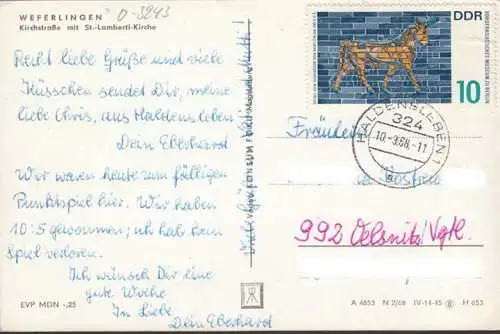 WEFERLINGEN
Kirchstraße mit St.-Lamberti-Kirche
D-3243
Recht liebe Grüße und viele
Küsschen sendet Dir, meine
liebe Chris, aus Haldensleben
Dein Eberhard
Wir waren heute zum fälligen
Punktspiel hier. Wir haben
10:5 gewonnen; ich hab kein
Spiel verloren.
Ich wünsch Dir eine
gute Woche
In Liebe
Dein Eberhard
EVP MDN -,25
Viele Grüße
VERLAG KONSUM FOTO
DDR
VORDERASIATISCHES MUSEUM ZU BERLIN
10
HALDENSLEBEN 1
324
10.-3.68.-11
a
Fräulein
992 Oelsnitz/Vgtl.
A 4653 N 2/68 IV-14-45 H 653